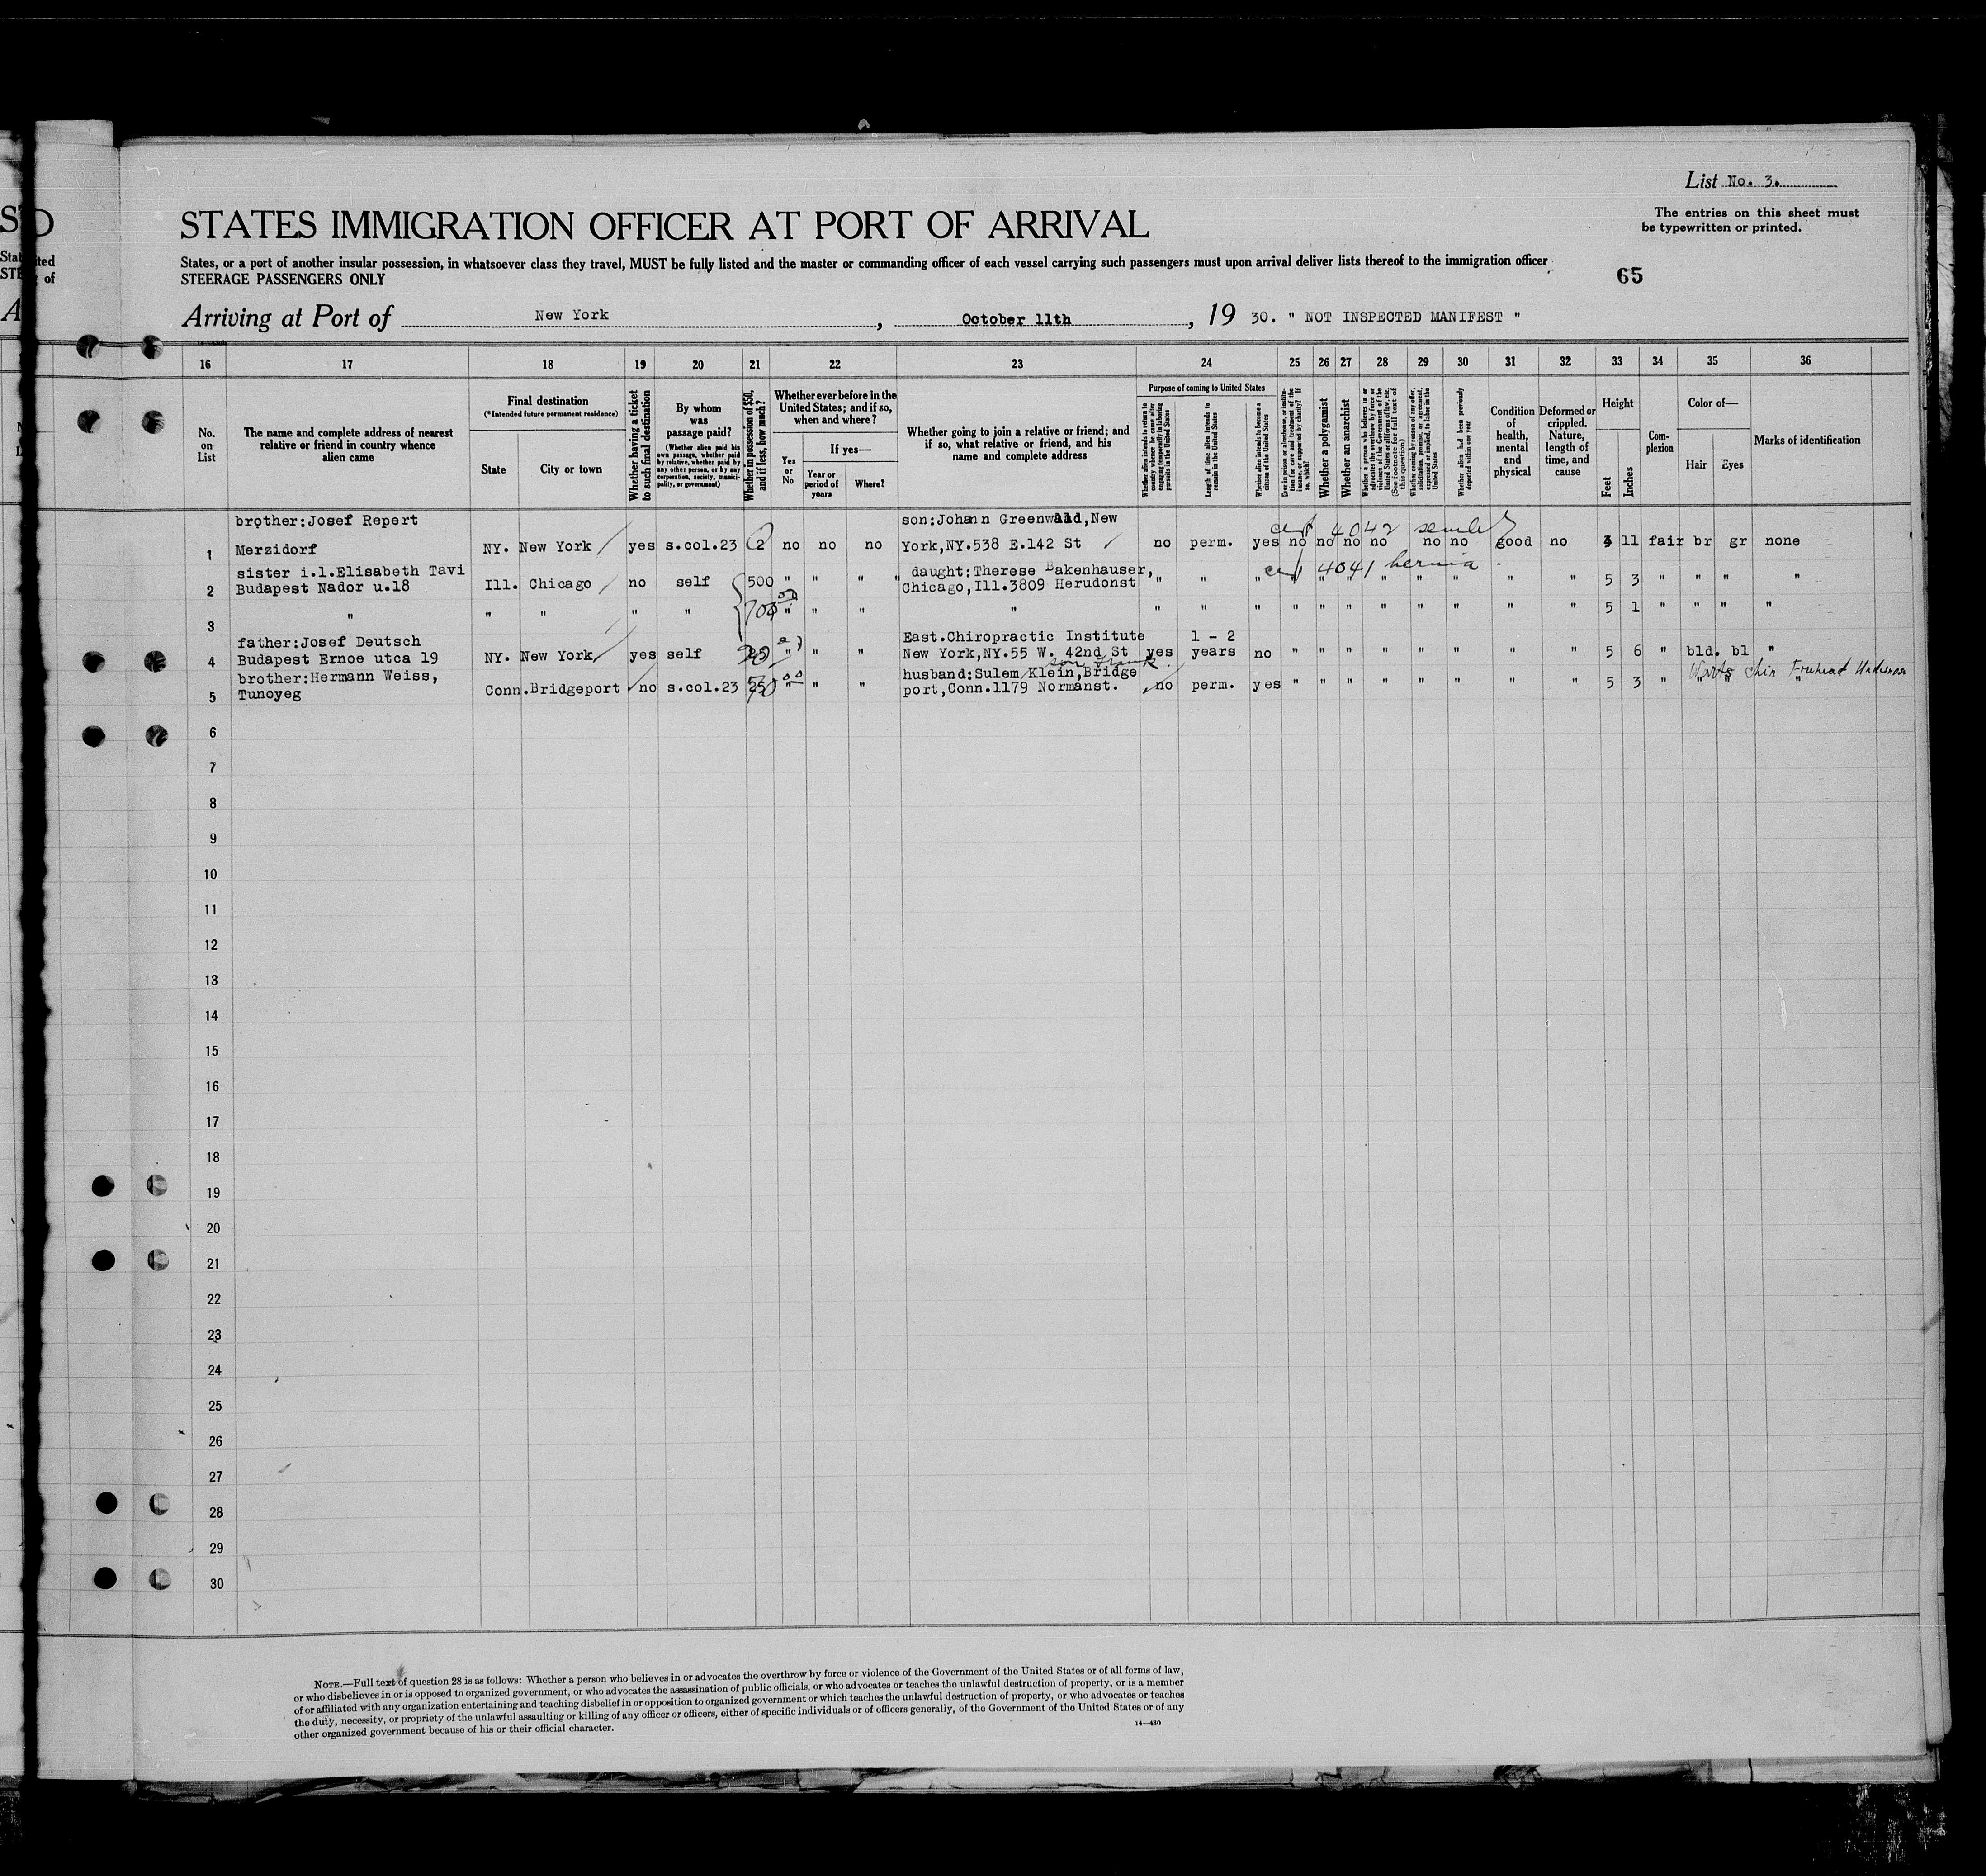 List No. 3.
The entries on this sheet must
be typewritten or printed.
STATES IMMIGRATION OFFICER AT PORT OF ARRIVAL
States, or a port of another insular possession, in whatsoever class they travel, MUST be fully listed and the master or commanding officer of each vessel carrying such passengers must upon arrival deliver lists thereof to the immigration officer
STEERAGE PASSENGERS ONLY
65
Arriving at Port of New York, October 11th, 19 30. " NOT INSPECTED MANIFEST "
16 17 18 19 20 21 22 23 24 25 26 27 28 29 30 31 32 33 34 35 36
No. on List
The name and complete address of nearest relative or friend in country whence alien came
Final destination
(*Intended future permanent residence)
State
City or town
Whether having a ticket to such final destination
By whom was passage paid?
(Whether alien paid his own passage, whether paid by relative, whether paid by any other person, or by any corporation, society, municipality, or government)
Whether in possession of $50, and if less, how much?
Whether ever before in the United States; and if so, when and where?
Yes or No
If yes—
Year or period of years
Where?
Whether going to join a relative or friend; and if so, what relative or friend, and his name and complete address
Purpose of coming to United States
Whether alien intends to return to country whence he came after engaging temporarily in laboring pursuits in the United States
Length of time alien intends to remain in the United States
Whether alien intends to become a citizen of the United States
Ever in prison or almshouse, or institution for care and treatment of the insane, or supported by charity? If so, which?
Whether a polygamist
Whether an anarchist
Whether a person who believes in or advocates the overthrow by force or violence of the Government of the United States or all forms of law, etc. (See footnote for full text of this question)
Whether coming by reason of any offer, solicitation, promise, or agreement, expressed or implied, to labor in the United States
Whether alien had been previously deported within one year
Condition of health, mental and physical
Deformed or crippled. Nature, length of time, and cause
Height
Feet
Inches
Complexion
Color of—
Hair
Eyes
Marks of identification
brother:Josef Repert son:Johann Greenwald,New
cert 4042
1 Merzidorf NY. New York yes s.col.23 2 no no no York,NY.538 E.142 St no perm. yes no no no no no no good no 11 fair br gr none
sister i.l.Elisabeth Tavi daught:Therese Bakenhauser,
cert 4041 hernia
2 Budapest Nador u.18 Ill. Chicago no self 500 " " " Chicago,Ill.3809 Herudonst " " " " " " " " " " " 5 3 " " " "
3 " " " " " 700 " " " " " " " " " " " " " " 5 1 " " " "
father:Josef Deutsch East.Chiropractic Institute 1 - 2
4 Budapest Ernoe utca 19 NY. New York yes self " " " New York,NY.55 W. 42nd St yes years no " " " " " " " " 5 6 " bld. bl "
son Frank
brother:Hermann Weiss, husband:Sulem Klein,Bridge
Warts Chin Forehead
5 Tunoyeg Conn.Bridgeport no s.col.23 " " " port,Conn.1179 Normanst. no perm. yes " " " " " " " " 5 3 " " " "
6
7
8
9
10
11
12
13
14
15
16
17
18
19
20
21
22
23
24
25
26
27
28
29
30
NOTE.—Full text of question 28 is as follows: Whether a person who believes in or advocates the overthrow by force or violence of the Government of the United States or of all forms of law,
or who disbelieves in or is opposed to organized government, or who advocates the assassination of public officials, or who advocates or teaches the unlawful destruction of property, or is a member
of or affiliated with any organization entertaining and teaching disbelief in or opposition to organized government or which teaches the unlawful destruction of property, or who advocates or teaches
the duty, necessity, or propriety of the unlawful assaulting or killing of any officer or officers, either of specific individuals or of officers generally, of the Government of the United States or of any
other organized government because of his or their official character.
14—430